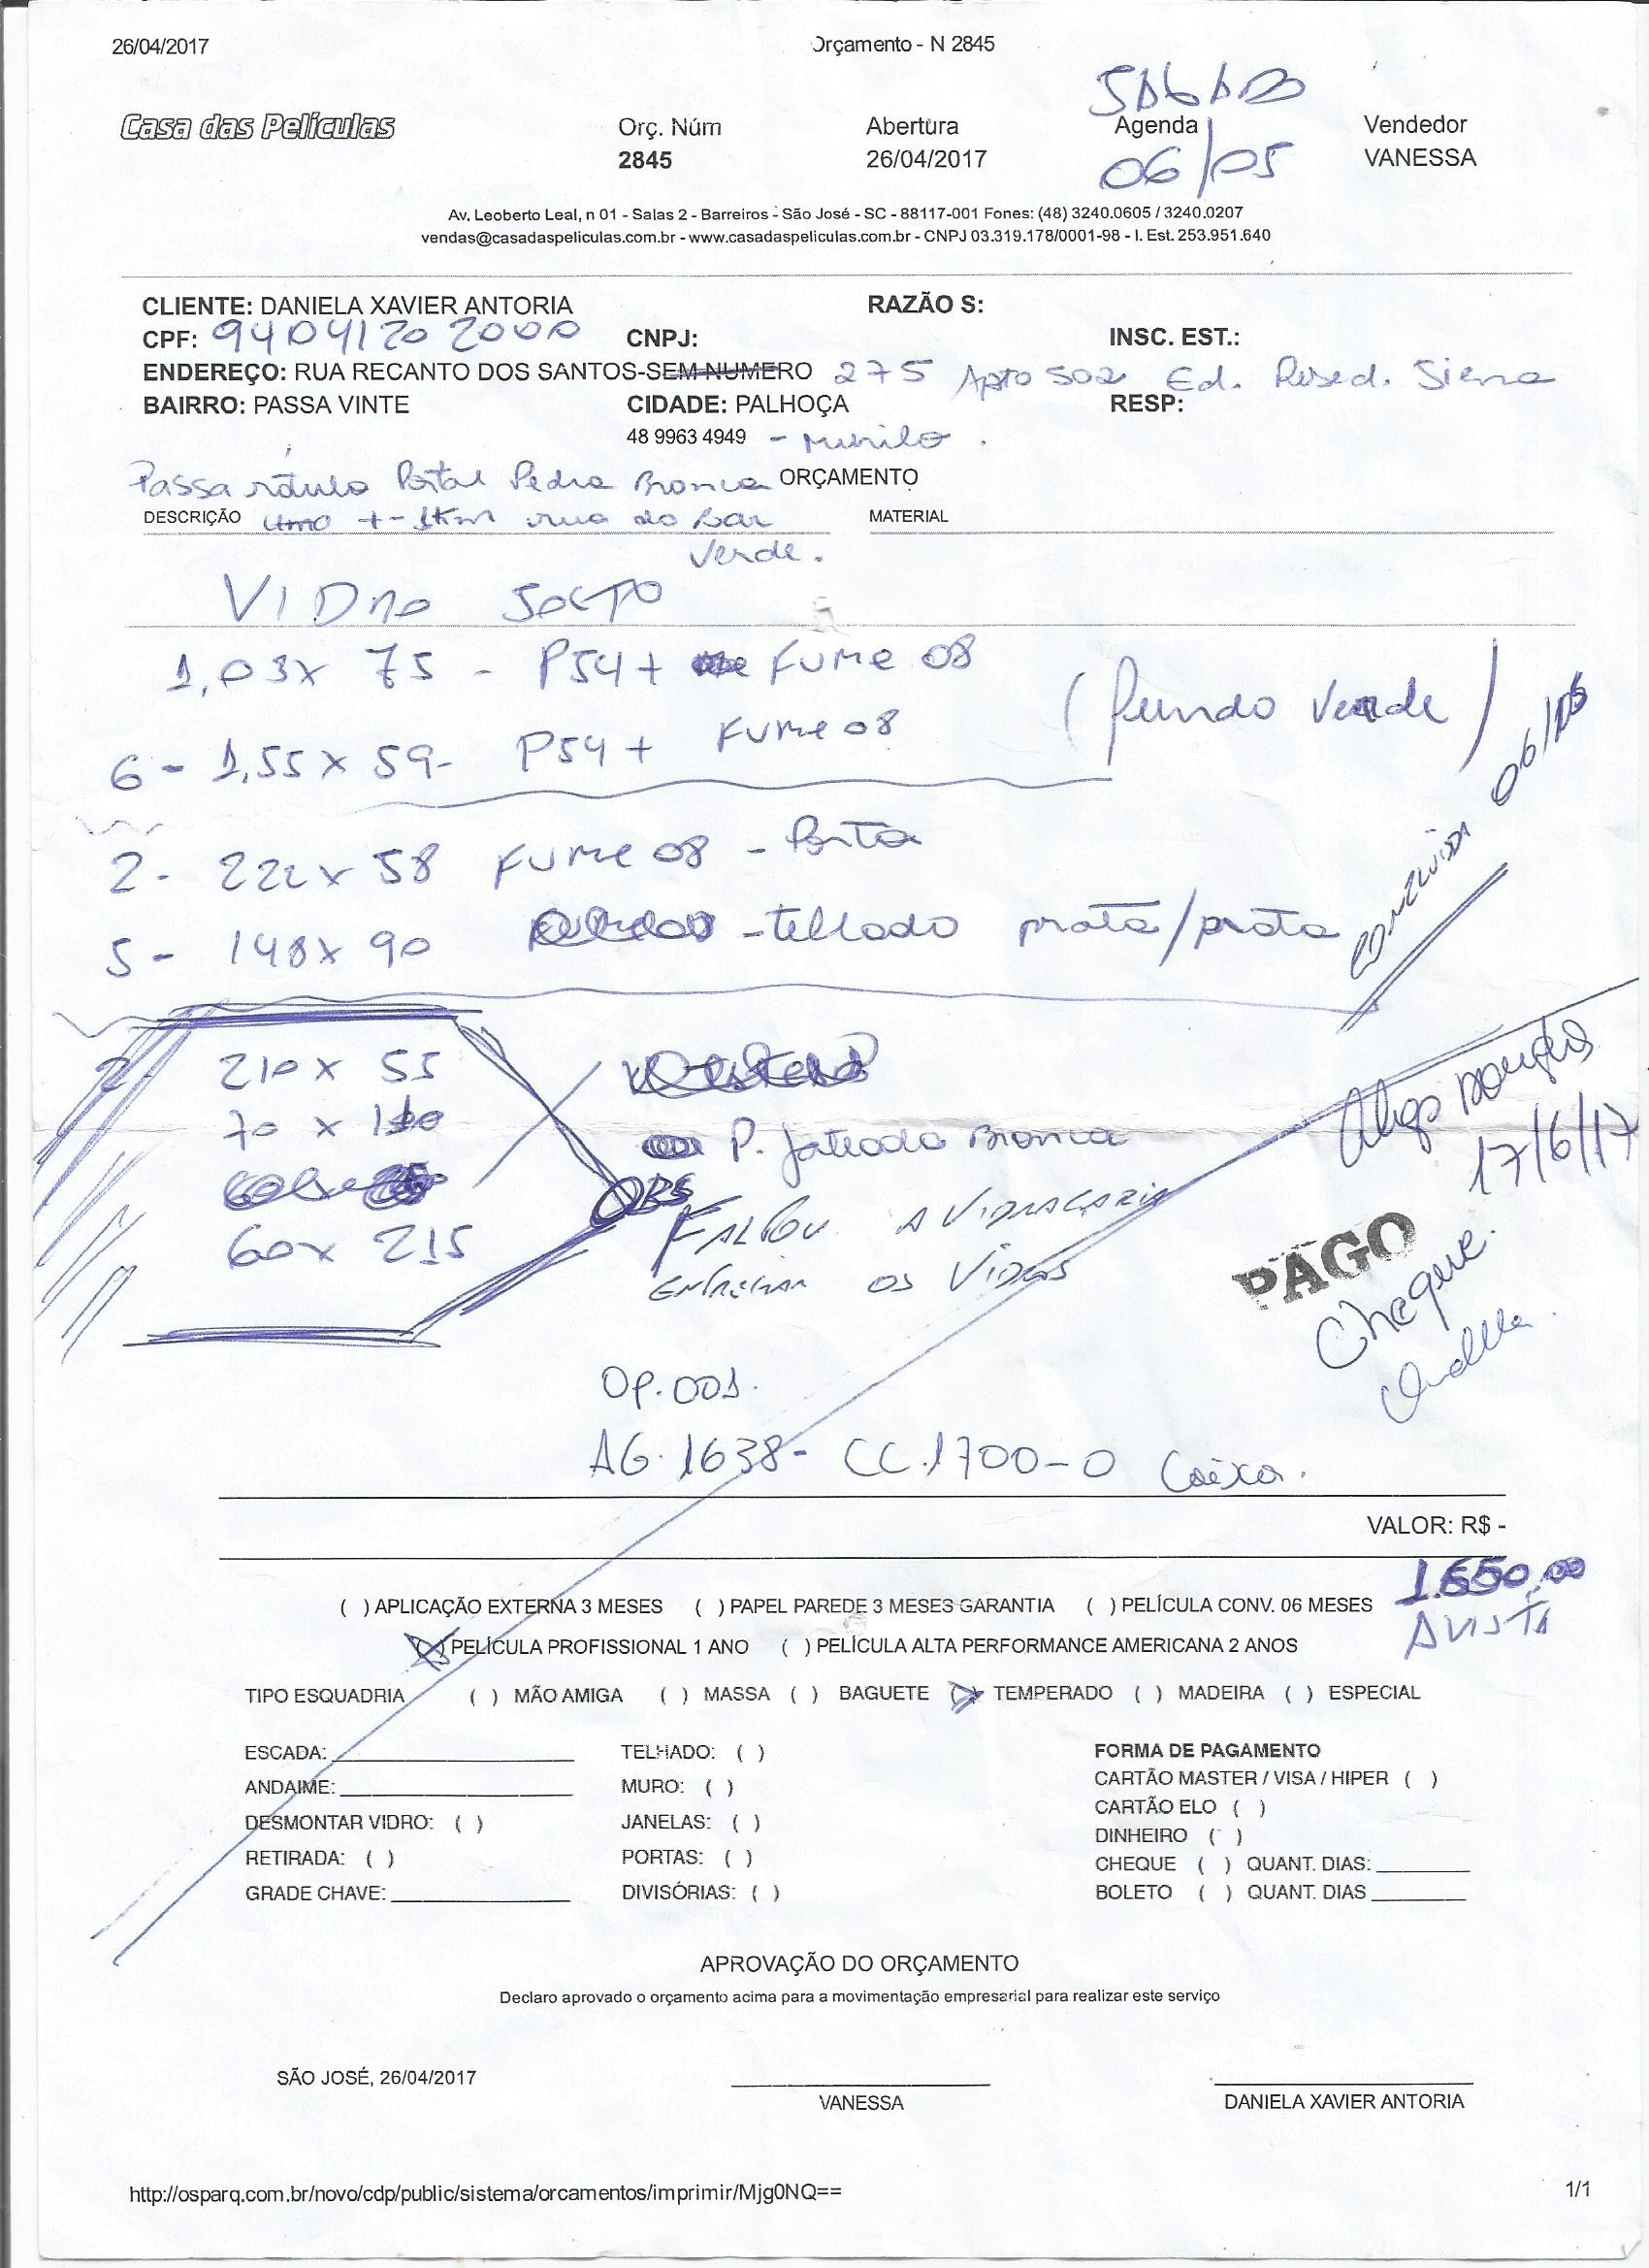 26/04/2017 Orçamento - N 2845
Casa das Películas Orç. Núm Abertura Agenda Vendedor
2845 26/04/2017 06/05 VANESSA
Av. Leoberto Leal, n 01 - Salas 2 - Barreiros - São José - SC - 88117-001 Fones: (48) 3240.0605 / 3240.0207
vendas@casadaspeliculas.com.br - www.casadaspeliculas.com.br - CNPJ 03.319.178/0001-98 - I. Est. 253.951.640
CLIENTE: DANIELA XAVIER ANTORIA RAZÃO S:
CPF: 94041202000 CNPJ: INSC. EST.:
ENDEREÇO: RUA RECANTO DOS SANTOS-SEM NUMERO 275 Apto 502 Ed. Resed. Siena
BAIRRO: PASSA VINTE CIDADE: PALHOÇA RESP:
48 9963 4949 - Murilo.
Passa Portal Pedra Branca ORÇAMENTO
DESCRIÇÃO +- 1km rua do Bar MATERIAL
Verde.
VIDro SOLTO
1,03x 75 - P54 + FUME 08
(fundo Verde)
6 - 1,55 x 59 - P54 + FUME 08
06/05
2 - 222 x 58 FUME 08 - Porta
5 - 148 x 90 - telhado prata/prata
210 x 55
70 x 110 P. Jateado Branca
17/6/17
OBS
60 x 215 FALTOU A VIDRAÇARIA
ENTREGAR OS VIDROS
PAGO
Cheque.
OP. 001.
AG. 1638 - CC. 1700-0 Caixa.
VALOR: R$ -
1.650,00
( ) APLICAÇÃO EXTERNA 3 MESES ( ) PAPEL PAREDE 3 MESES GARANTIA ( ) PELÍCULA CONV. 06 MESES
AVISTA
(X) PELÍCULA PROFISSIONAL 1 ANO ( ) PELÍCULA ALTA PERFORMANCE AMERICANA 2 ANOS
TIPO ESQUADRIA ( ) MÃO AMIGA ( ) MASSA ( ) BAGUETE (X) TEMPERADO ( ) MADEIRA ( ) ESPECIAL
ESCADA: TELHADO: ( ) FORMA DE PAGAMENTO
ANDAIME: MURO: ( ) CARTÃO MASTER / VISA / HIPER ( )
DESMONTAR VIDRO: ( ) JANELAS: ( ) CARTÃO ELO ( )
DINHEIRO ( )
RETIRADA: ( ) PORTAS: ( ) CHEQUE ( ) QUANT. DIAS:
GRADE CHAVE: DIVISÓRIAS: ( ) BOLETO ( ) QUANT. DIAS
APROVAÇÃO DO ORÇAMENTO
Declaro aprovado o orçamento acima para a movimentação empresarial para realizar este serviço
SÃO JOSÉ, 26/04/2017
VANESSA DANIELA XAVIER ANTORIA
http://osparq.com.br/novo/cdp/public/sistema/orcamentos/imprimir/Mjg0NQ== 1/1